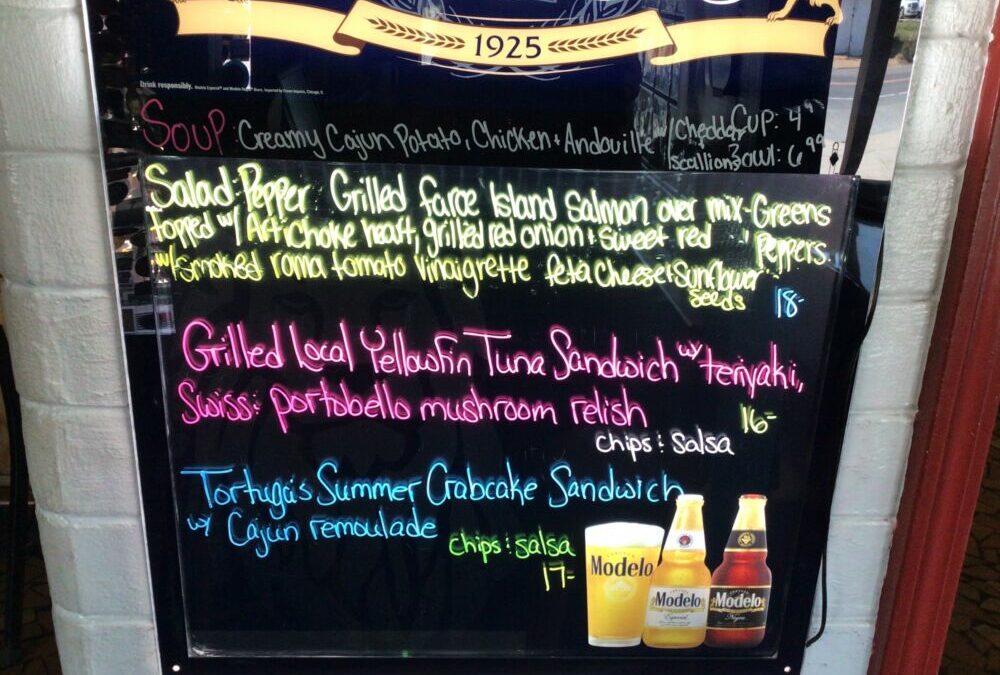 1925
Drink responsibly.
Soup: Creamy Cajun Potato, Chicken + Andouille w/ Cheddar Cup: 4⁹⁹
+ scallions Bowl: 6⁹⁹
Salad: Pepper Grilled Faroe Island Salmon over mix-Greens
topped w/ Artichoke heart, grilled red onion + sweet red Peppers
w/ smoked roma tomato vinaigrette feta cheese + Sunflower
seeds 18-
Grilled Local Yellowfin Tuna Sandwich w/ teriyaki,
Swiss + portobello mushroom relish 16-
chips + salsa
Tortuga's Summer Crabcake Sandwich
w/ Cajun remoulade chips + salsa
17-
Modelo
Modelo
Especial
Modelo
Negra